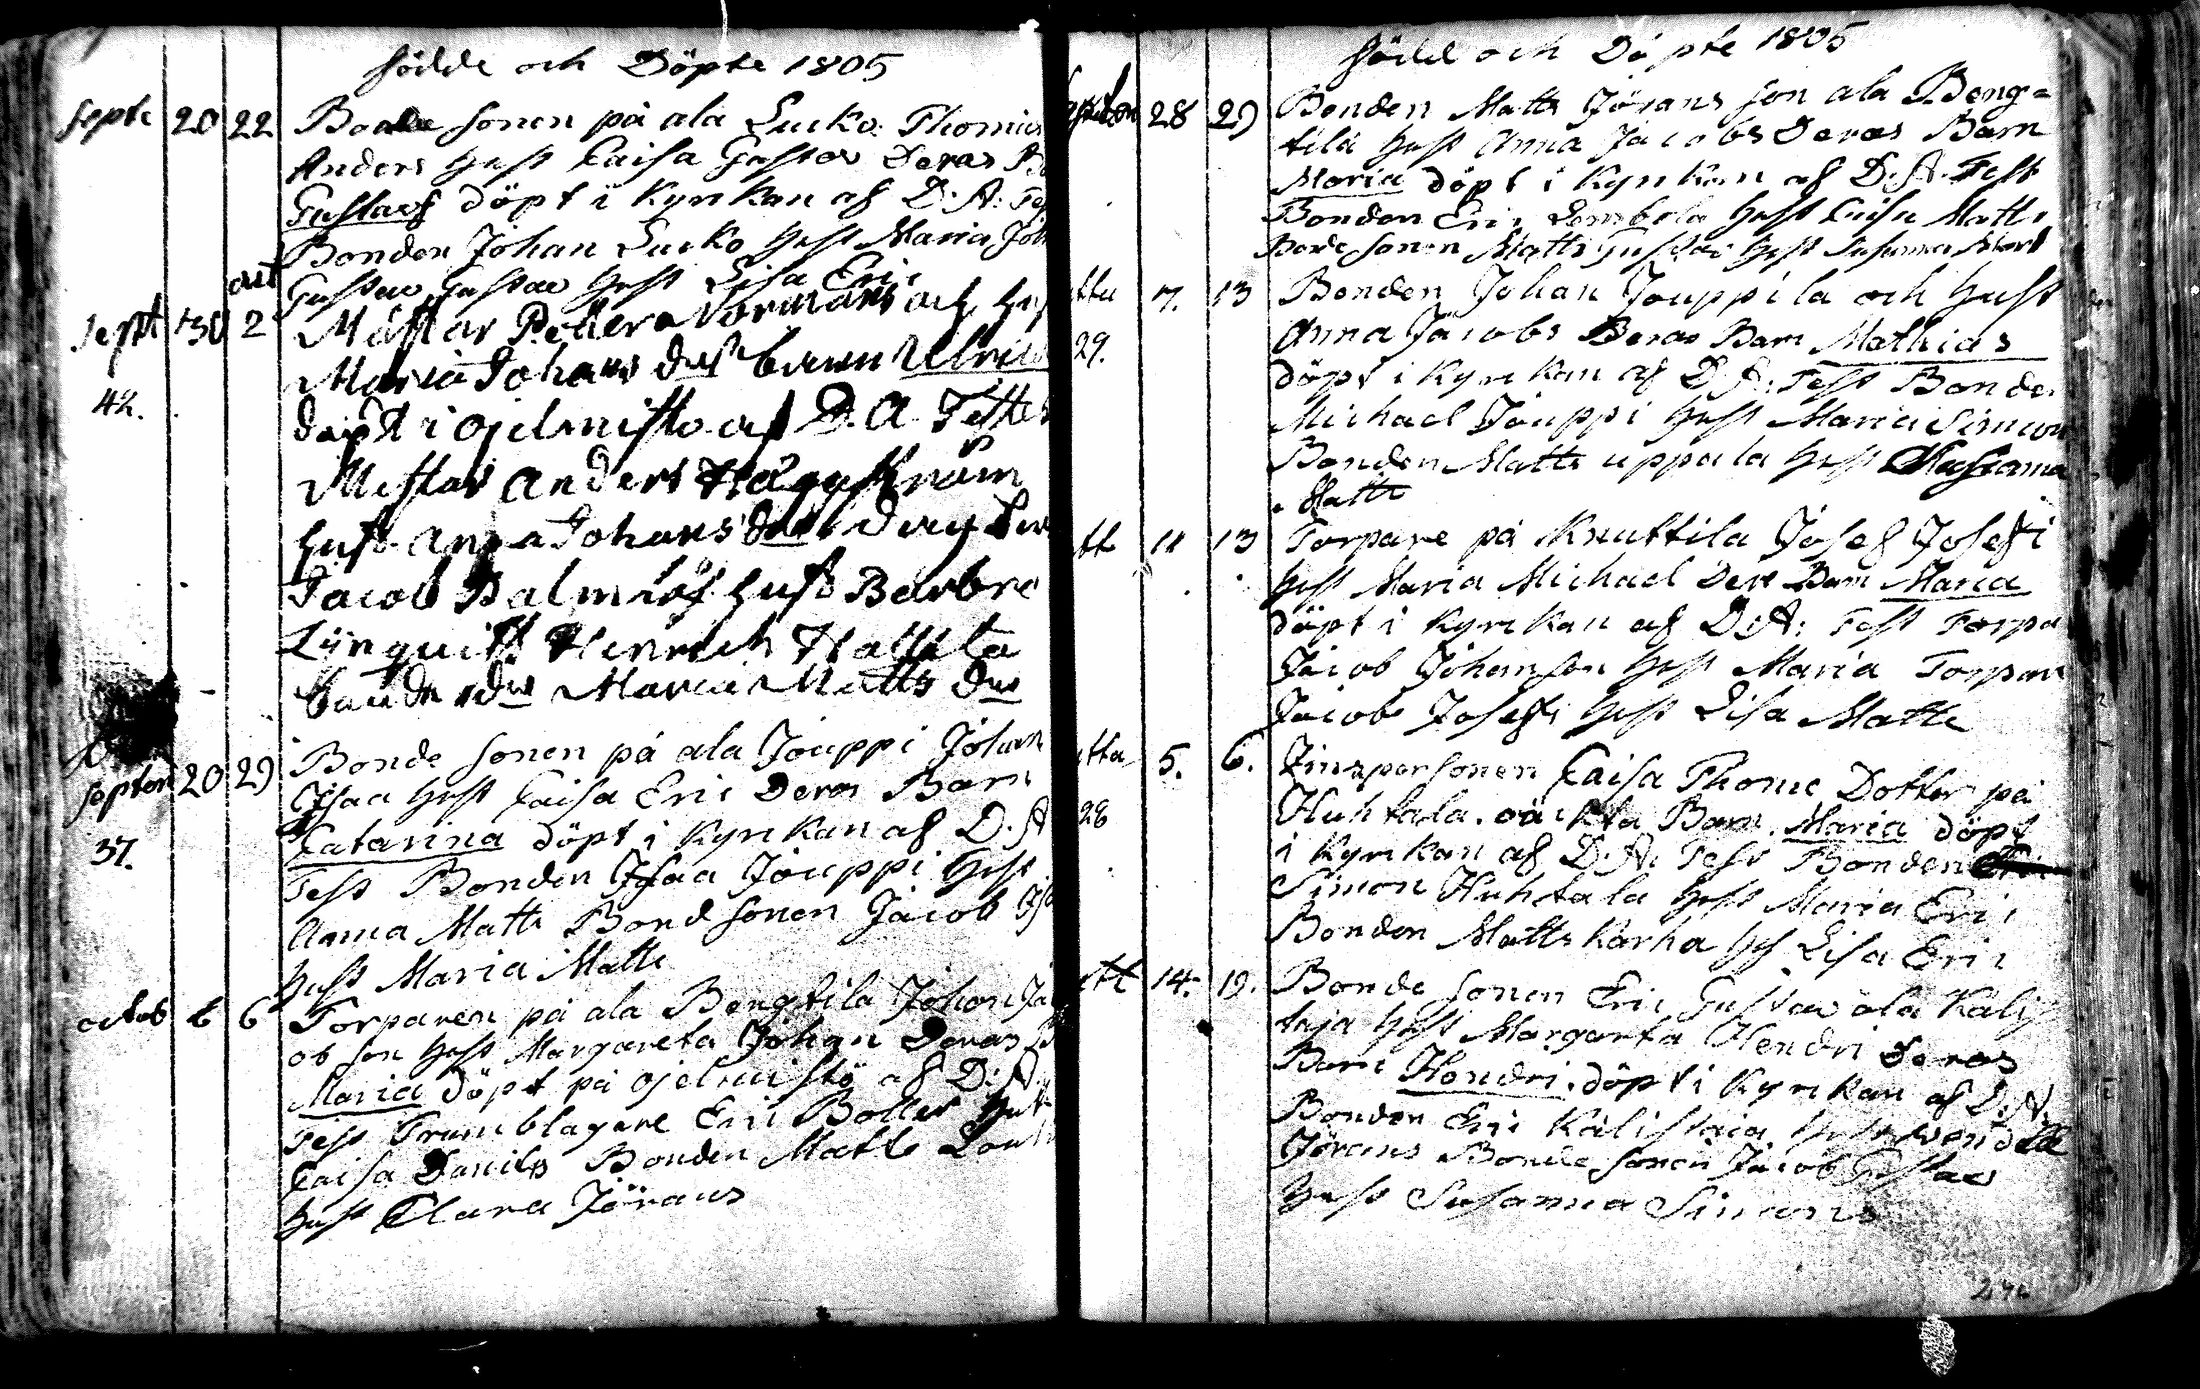 födde och Döpte 1805
Septe 20 22 Bonde sonen på ala Lucko Thomas
Anders Hust Caisa Gustav Deras
Gustaf döpt i Kyrkan af D: A: Test
Bonden Johan Lucko Hust Maria Joh
Gustav Gustav Hust Lisa Eric
oct
Sept 30 2 Mästar Petter Norrman och Hust
Maria Johans dotr barn Ulrica
42.
döpt i ojelmisto af D. A Testes
Mestar Anders Häggström
hust. Anna Johans dotr
Jacob Palmlöf hust Barbro
Lijnquist Hinrich Hallila
bonde dr Maria Matts dr
Septem 20 29 Bonde sonen på ala Jouppi Johan
Isaa Hust Caisa Eric Deras Barn
37.
Catarina döpt i Kyrkan af D. A
Test Bonden Isaa Jouppi Hust
Anna Matts Bond sonen Jacob
Hust Maria Matts
octob 6 6 Torparen på ala Bengtila Johan Jac
ob son Hust Margareta Johan Deras
Maria Döpt på ojelmistö af D. A.
Test Trumblagare Eric Boller Hust
Caisa Daniels Bonden Matts
Hust Clara Jörans
födde och Döpte 1805
28 29 Bonden Matts Jörans son ala Beng=
tila Hust Anna Jacobs Deras Barn
Maria döpt i Kyrkan af D. A. Test
Bonden Eric Hust Caisa Matts
Bonde sonen Matts Gustav Hust Susanna
7. 13 Bonden Johan Jouppila och Hust
Anna Jacobs Deras Barn Mathias
29.
döpt i Kyrkan af D. A: Test Bonden
Michael Jouppi Hust Maria Simon
Bonden Matts uppala Hust
Matts
11 13 Torpare på Knuttila Josef Josefs
Hust Maria Michael Deras Barn Maria
döpt i Kyrkan af D: A: Test Torpa
Jacob Johanson Hust Maria Torpar
Jacob Josefs Hust Lisa Matts
5. 6. Caisa Thome Dotter på
Huhtala oäckta Barn Maria döpt
28
i Kyrkan af D. A: Test Bonden
Simon Huhtala Hust Maria Eric
Bonden Matts Karha Hust Lisa Eric
14. 19. Bonde sonen Eric Gustav ala Kalis
taja Hust Margareta Hendri Deras
Barn Hendri döpt i Kyrkan af D. A.
Bonden Eric Kalistaia Hust
Jörans Bonde sonen Jacob Gustav
Hust Susanna Simons